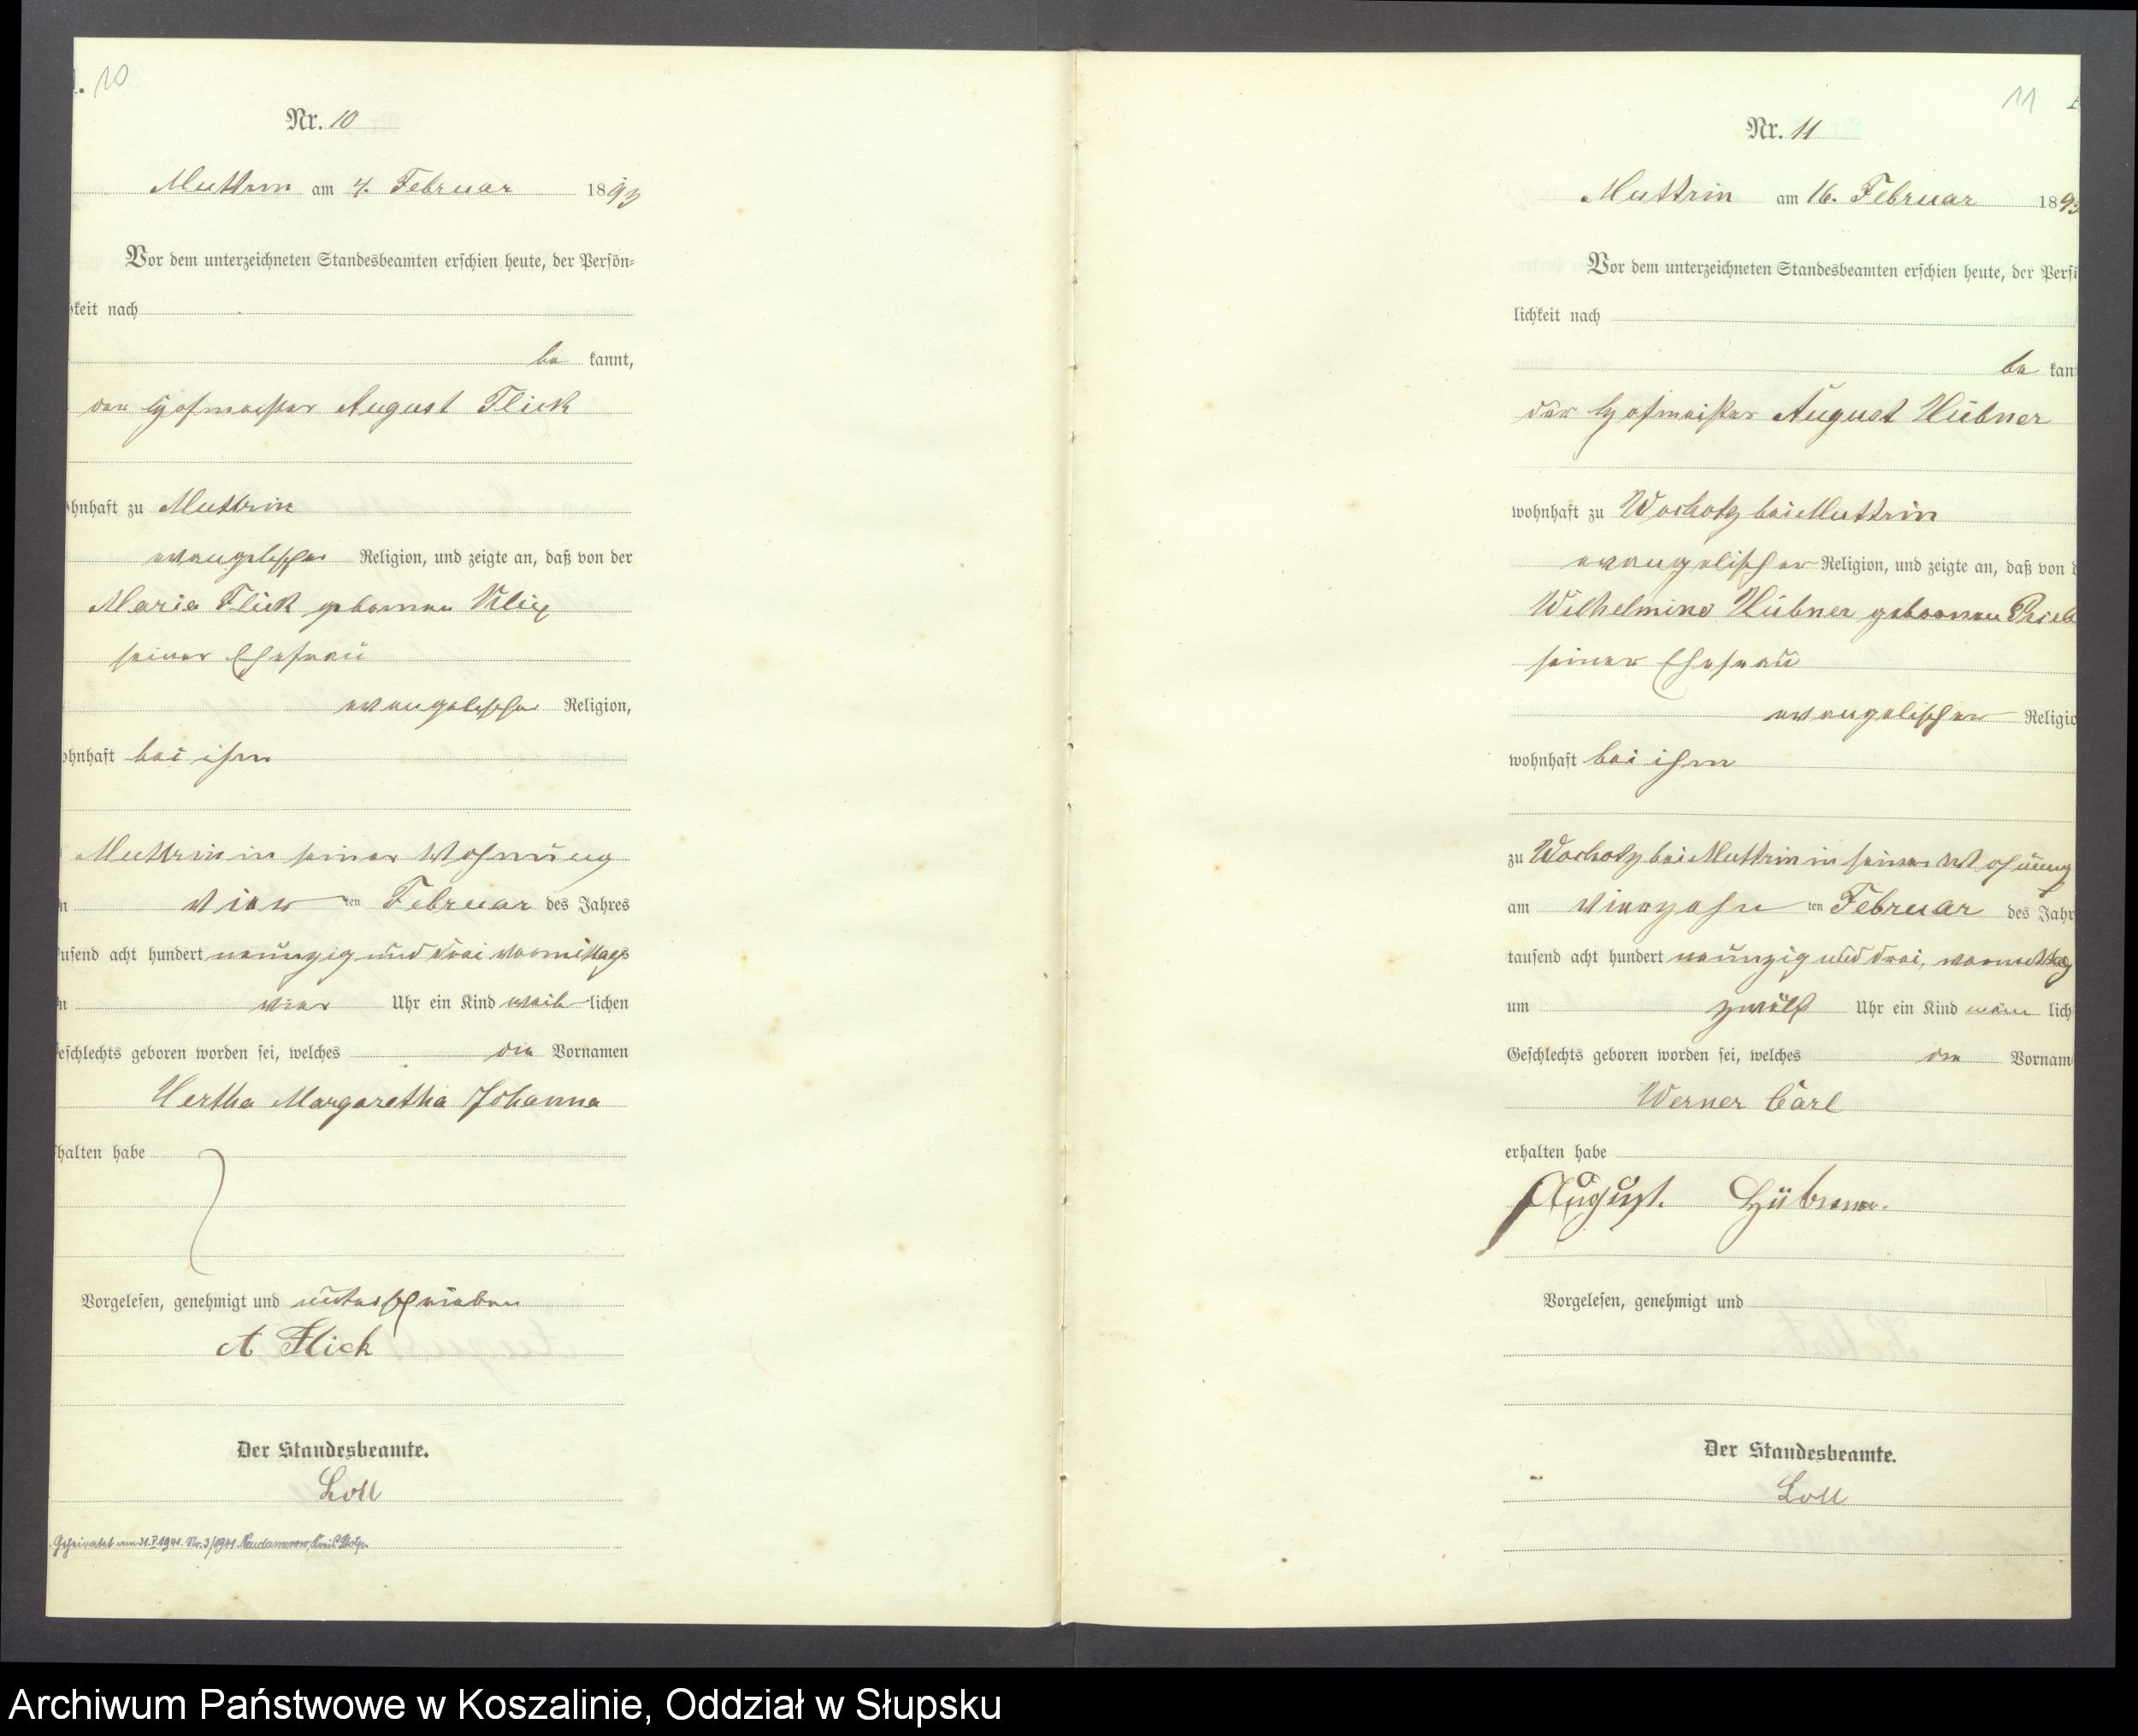 10
Nr. 10
Muttrin am 4. Februar 1893
Vor dem unterzeichneten Standesbeamten erschien heute, der Persön=
keit nach
be kannt,
der Hofmeister August Flick
ohnhaft zu Muttrin
evangelischer Religion, und zeigte an, daß von der
Maria Flick geborenen
seiner Ehefrau
evangelischer Religion,
ohnhaft bei ihm
Muttrin in seiner Wohnung
vier ten Februar des Jahres
usend acht hundert neunzig und drei vormittags
vier Uhr ein Kind weib lichen
eschlechts geboren worden sei, welches die Vornamen
Hertha Margaretha Johanna
halten habe
Vorgelesen, genehmigt und unterschrieben
A Flick
Der Standesbeamte.
Loll
Geheiratet am 31.5.1941. Nr. 3/1941 Neudamerow, Kreis Stolp.
11
Nr. 11
Muttrin am 16. Februar 1893
Vor dem unterzeichneten Standesbeamten erschien heute, der Persö
lichkeit nach
be kan
der Hofmeister August Hübner
wohnhaft zu bei Muttrin
evangelischer Religion, und zeigte an, daß von d
Wilhelmine Hübner geborenen
seiner Ehefrau
evangelischer Religio
wohnhaft bei ihm
zu bei Muttrin in seiner Wohnung
am vierzehn ten Februar des Jahr
tausend acht hundert neunzig und drei, vormittag
um zwölf Uhr ein Kind männ lich
Geschlechts geboren worden sei, welches die Vornam
Werner Carl
erhalten habe
August. Hübner.
Vorgelesen, genehmigt und
Der Standesbeamte.
Loll
Archiwum Państwowe w Koszalinie, Oddział w Słupsku